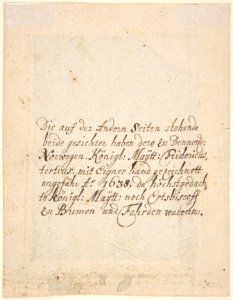 Die auf der Andern Seiten stehende
beide gesichter haben dero Zu Dennem:
Norwegen. Königl: Maÿtt: Fridericus
tertius, mit Eigner hand gezeichnett
ongefähr Aº 1638. da höchstgedach
te Königl: Maÿtt: noch Ertzbiscoff
Zu Bremen und Fehrden waren.